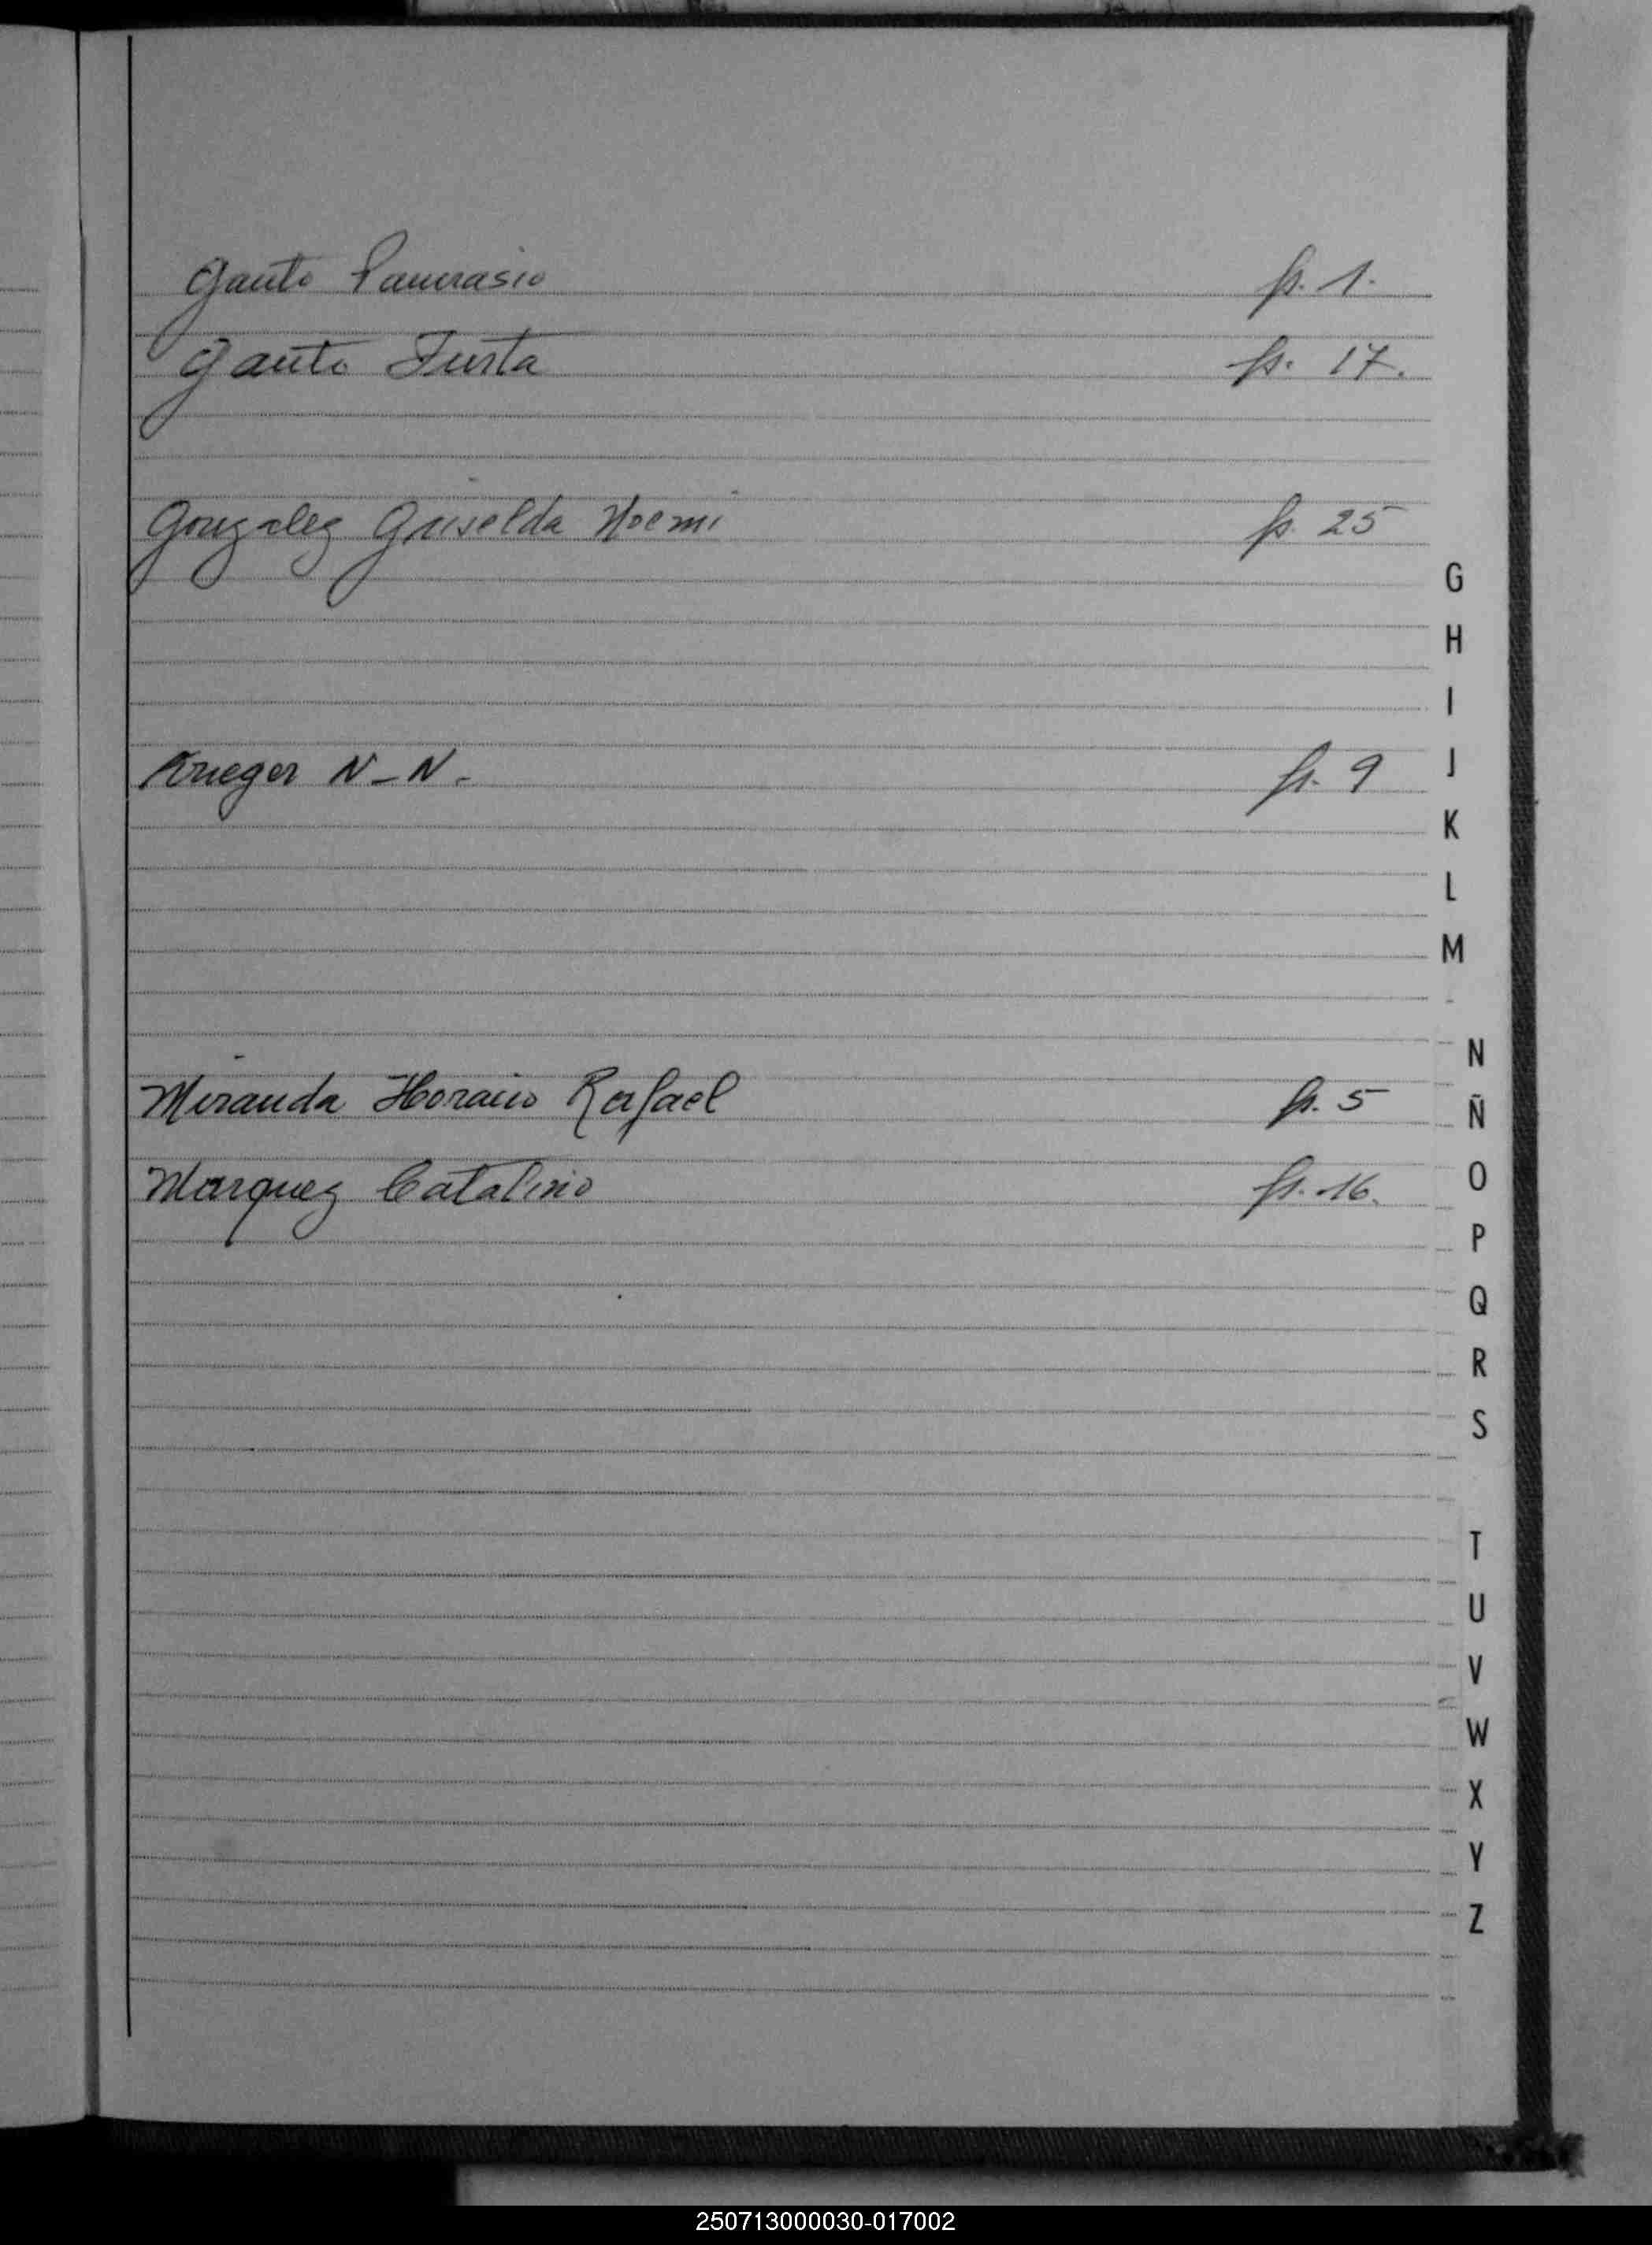 Gauto Pancrasio p. 1.
Gauto Justa p. 17.
Gonzalez Griselda Noemi p. 25
G
H
I
Krueger N-N. p. 9
J
K
L
M
N
Miranda Horacio Rafael p. 5
Ñ
O
Marquez Catalino p. 16.
P
Q
R
S
T
U
V
W
X
Y
Z
250713000030-017002